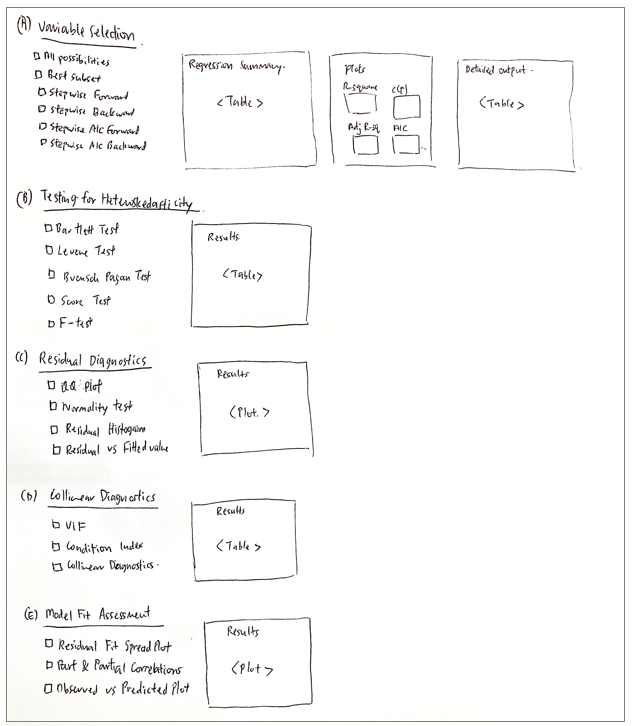 (A) Variable Selection.
All possibilities
Best subset
Stepwise Forward
Stepwise Backward
Stepwise AIC Forward
Stepwise AIC Backward
Regression Summary.
<Table>
Plots
R-square C(p)
Adj R-sq AIC
Detailed output.
<Table>
(B) Testing for Heteroskedasticity.
Bartlett Test
Levene Test
Breusch Pagan Test
Score Test
F-test
Results.
<Table>
(C) Residual Diagnostics
QQ Plot
Normality test
Residual Histogram
Residual vs Fitted value
Results
<Plot.>
(D) Collinear Diagnostics
VIF
Condition Index
Collinear Diagnostics.
Results
<Table>
(E) Model Fit Assessment
Residual Fit Spread Plot
Part & Partial Correlations
Observed vs Predicted Plot
Results
<Plot>